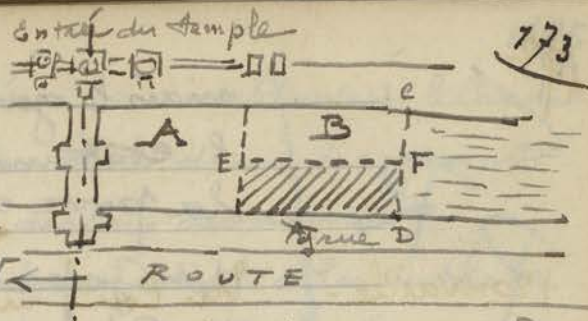 Entrée du temple
173
A B C
E F
Digue D
ROUTE